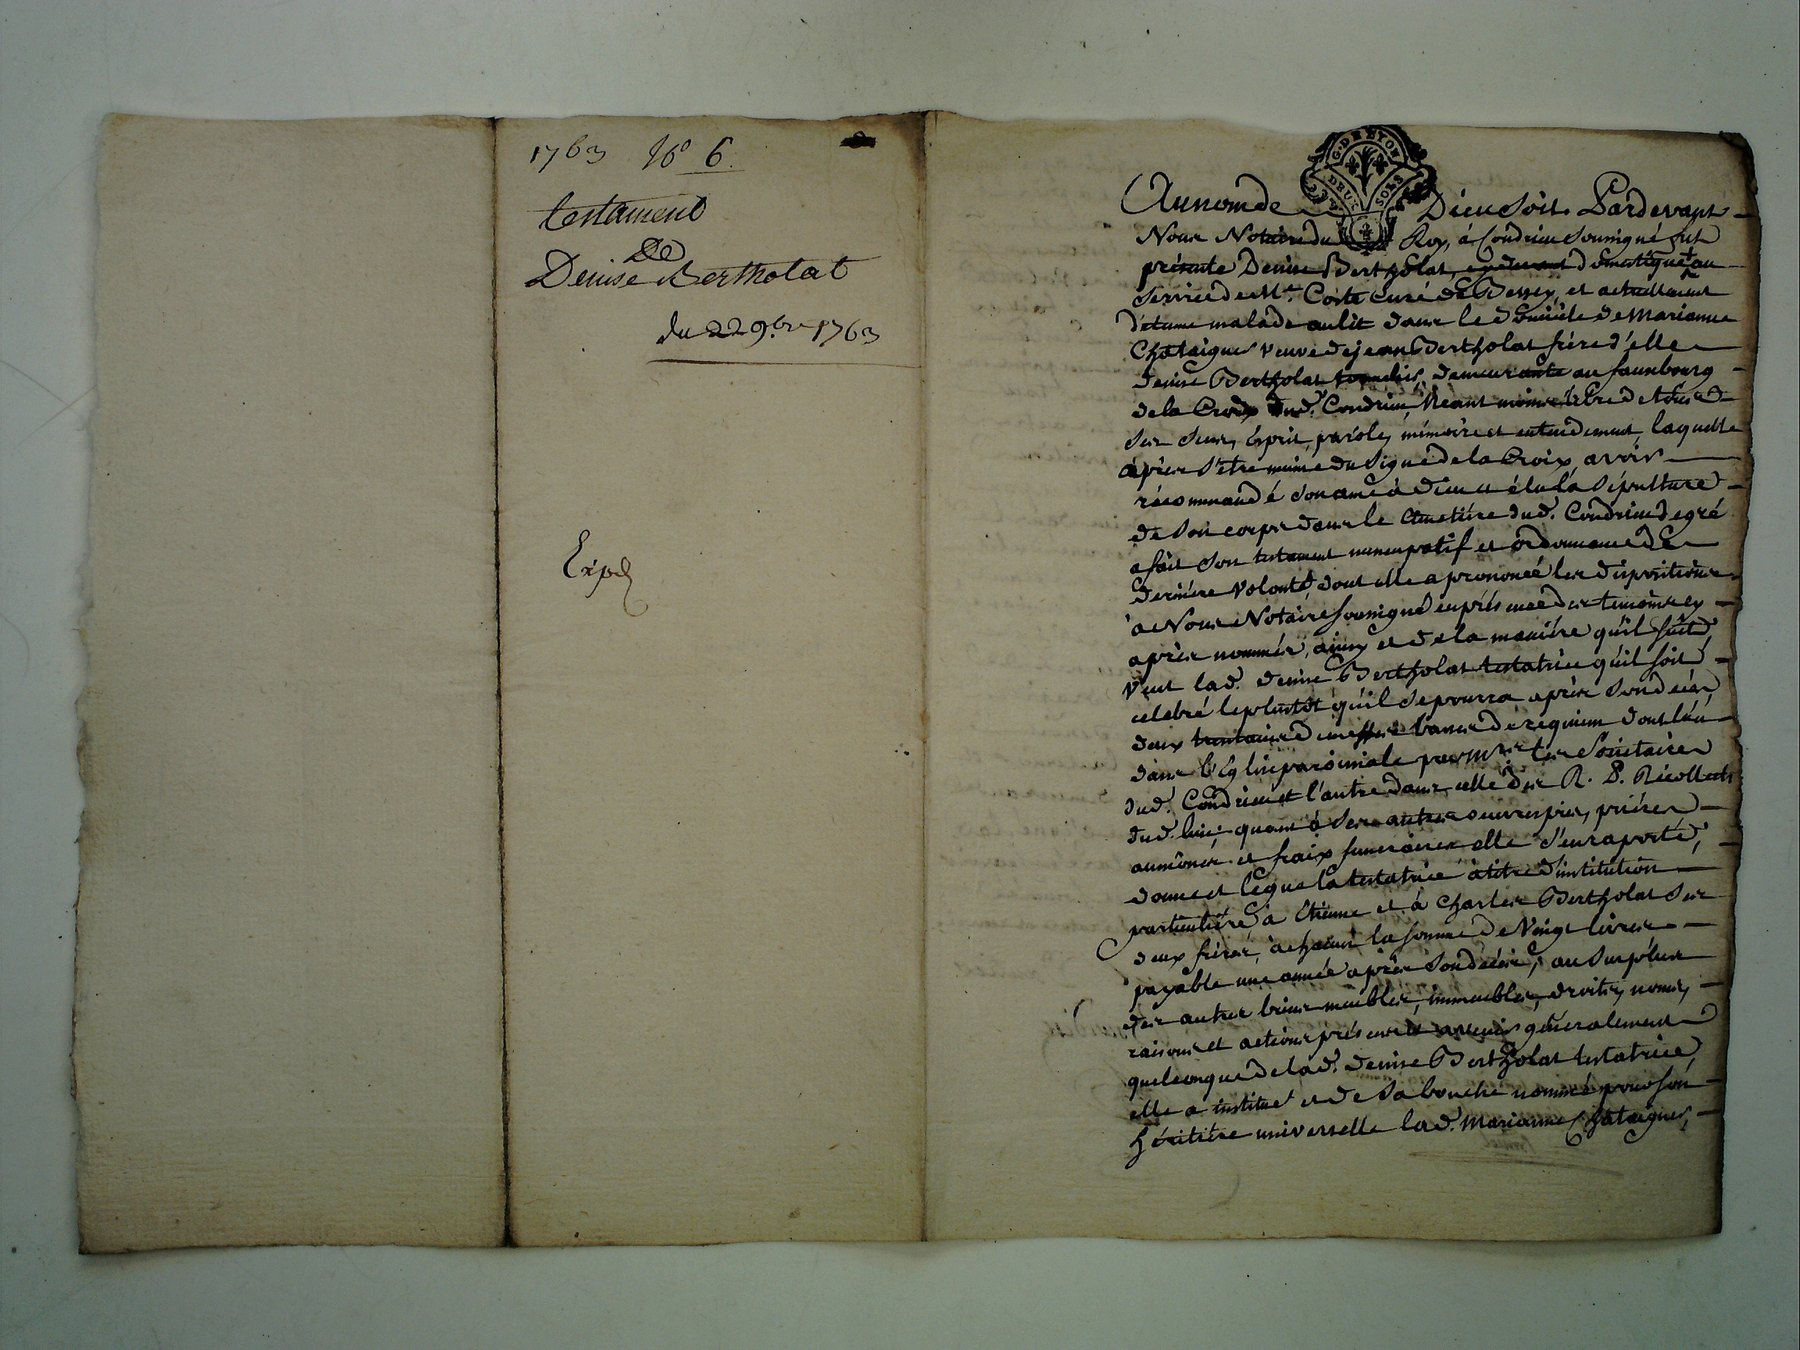 1763 N° 6.
testament
De
Denise Bertholat
du 22 9bre 1763
Expd
G. D. LYON
DEUX SOLS
Au nom de Dieu soit. Pardevant
Nous Notaire du Roy, à Condrieu soussigné fut
présente Denise Bertholat, domestique au
service de Mr. Coste Curé de Bessey, et actuellement
détenue malade au lit dans le domicile de Marianne
Chataigner veuve de jean Bertholat frère d'elle
denise Bertholat demeurante au fauxbourg
de la Croix dud. Condrieu, Neant moins libre de tous
ses sens, ésprit, parole, mémoire et entendement, laquelle
après s'être munie du signe de la Croix, avoir
récommandé son ame à dieu et élu la sépulture
de son corps dans le cimetière dud. Condrieu de gré
a fait son testament nuncupatif et ordonnance de
dernière volonté, dont elle a prononcé les dispositions
a Nous Notaire soussigné en présence des temoins cy
après nommés, ainsy et de la manière qu'il suit,
veut lad. denise Bertholat testatrice qu'il soit
celebré le plustôt qu'il se pourra après son décès,
deux trentaines de messes basses de réquiem dont l'un
dans l'Eglise paroissiale par Mrs les Sociétaires
dud. Condrieu et l'autre dans celle des R. P. Récollects
dud. lieu; quant à ses autres oeuvres pies, prières
aumônes et fraix funeraires elle s'en raporte,
donne et lègue la testatrice à titre d'institution
particulière à Etienne et à Charles Bertholat ses
deux frères, à chacun la somme de vingt livres
payable une année après son décès, au surplus
des autres biens meubles, immeubles, droits, noms,
raisons et actions présents et avenirs généralement
quelconque de lad. denise Bertholat testatrice,
elle a institué et de sa bouche nommé pour son
héritière universelle lad. Marianne Chataigner,